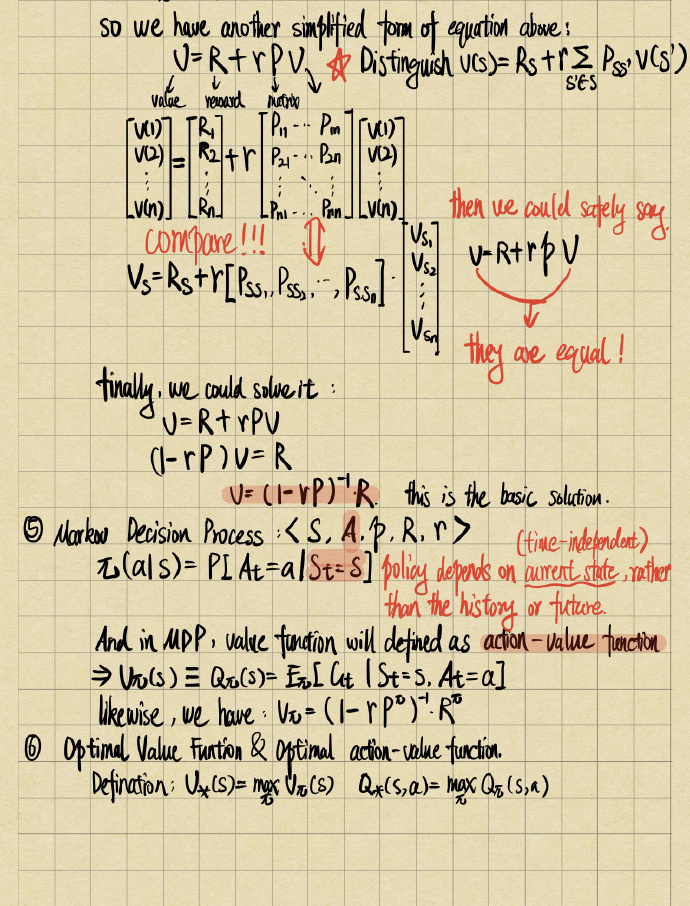 so we have another simplified form of equation above:
V = R + r P V. ☆ Distinguish V(s) = Rs + r Σ s'∈S Pss' V(s')
value reward matrix
[V(1) V(2) ⋮ V(n)] = [R1 R2 ⋮ Rn] + r [P11 ... P1n P21 ... P2n ⋮ ⋱ ⋮ Pn1 ... Pnn] [V(1) V(2) ⋮ V(n)]
compare!!!
then we could safely say
Vs = Rs + r [Pss1, Pss2, ..., Pssn] · [Vs1 Vs2 ⋮ Vsn]
V = R + r P V
they are equal!
finally, we could solve it:
V = R + r P V
(1 - r P) V = R
V = (1 - r P)⁻¹ · R. this is the basic solution.
⑤ Markov Decision Process: < S, A, P, R, r >
(time-independent)
π(a|s) = P[At = a | St = s]
policy depends on current state, rather
than the history or future.
And in MDP, value function will defined as action-value function
⇒ Vπ(s) ≡ Qπ(s) = Eπ[Gt | St = s, At = a]
likewise, we have: Vπ = (1 - r P^π)⁻¹ · R^π
⑥ Optimal Value Funtion & Optimal action-value function.
Defination: V*(s) = max π Vπ(s) Q*(s,a) = max π Qπ(s,a)